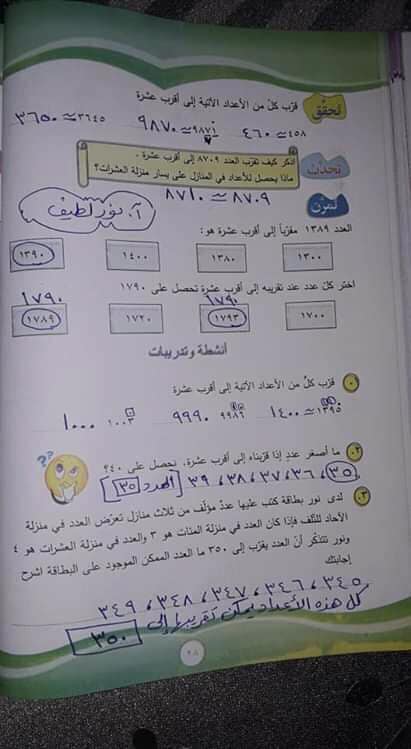 تحقّق
قرّب كلّ من الأعداد الآتية إلى أقرب عشرة
٤٥٨ ≈ ٤٦٠ ٩٨٧١ ≈ ٩٨٧٠ ٣٦٤٥ ≈ ٣٦٥٠
تحدّث
اذكر كيف تقرّب العدد ٨٧٠٩ إلى أقرب عشرة .
ماذا يحصل للأعداد في المنازل على يسار منزلة العشرات؟
٨٧٠٩ ≈ ٨٧١٠
تمرّن
أ. نور لطيف
العدد ١٣٨٩ مقرّباً إلى أقرب عشرة هو:
١٣٠٠ ١٣٨٠ ١٤٠٠ ١٣٩٠
اختر كلّ عدد عند تقريبه إلى أقرب عشرة تحصل على ١٧٩٠
١٧٩٠ ١٧٩٠
١٧٠٠ ١٧٩٣ ١٧٢٠ ١٧٨٩
أنشطة وتدريبات
١ قرّب كلّ من الأعداد الآتية إلى أقرب عشرة
١٣٩٥ ≈ ١٤٠٠ ٩٩٨٦ ٩٩٩٠ ١٠٠٣ ١٠٠٠
٢ ما أصغر عدد إذا قرّبناه إلى أقرب عشرة، نحصل على ٤٠؟
٣٥ ، ٣٦ ، ٣٧ ، ٣٨ ، ٣٩ العدد ٣٥
??
٣ لدى نور بطاقة كتب عليها عددٌ مؤلّف من ثلاث منازل تعرّض العدد في منزلة
الآحاد للتلف فإذا كان العدد في منزلة المئات هو ٣ والعدد في منزلة العشرات هو ٤
ونور تتذكّر أنّ العدد يقرّب إلى ٣٥٠ ما العدد الممكن الموجود على البطاقة اشرح
إجابتك
٣٤٥ ، ٣٤٦ ، ٣٤٧ ، ٣٤٨ ، ٣٤٩
كل هذه الأعداد يمكن تقريبها إلى
٣٥٠
٢٨